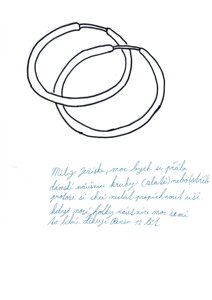 Milý Ježíšku, moc bych si přála
dámské náušnice kruhy (zlaté) nebo stříb
protože si chci nechat propíchnout uši.
když nosí holky náušnice moc se mi
to líbí. děkuji 12 let